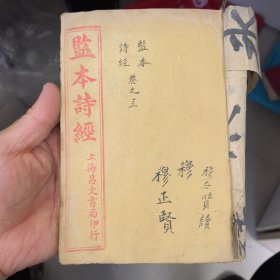 監本詩經
上海昌文書局印行
監本
詩經 卷之三
穆石賢讀
穆
穆正賢